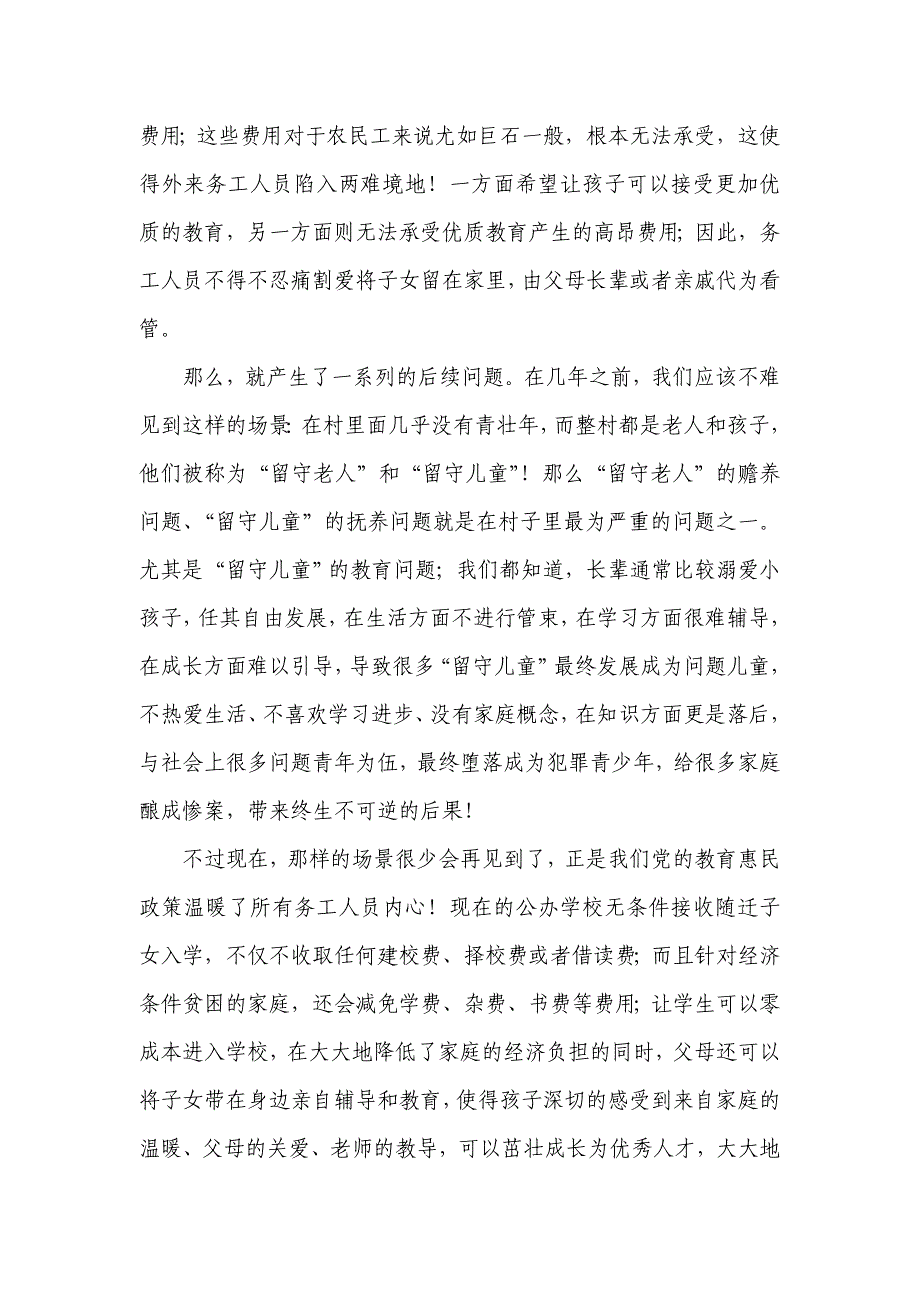 费用；这些费用对于农民工来说尤如巨石一般，根本无法承受，这使
得外来务工人员陷入两难境地！一方面希望让孩子可以接受更加优
质的教育，另一方面则无法承受优质教育产生的高昂费用；因此，务
工人员不得不忍痛割爱将子女留在家里，由父母长辈或者亲戚代为看
管。
那么，就产生了一系列的后续问题。在几年之前，我们应该不难
见到这样的场景：在村里面几乎没有青壮年，而整村都是老人和孩子，
他们被称为“留守老人”和“留守儿童”！那么“留守老人”的赡养
问题、“留守儿童”的抚养问题就是在村子里最为严重的问题之一。
尤其是“留守儿童”的教育问题；我们都知道，长辈通常比较溺爱小
孩子，任其自由发展，在生活方面不进行管束，在学习方面很难辅导，
在成长方面难以引导，导致很多“留守儿童”最终发展成为问题儿童，
不热爱生活、不喜欢学习进步、没有家庭概念，在知识方面更是落后，
与社会上很多问题青年为伍，最终堕落成为犯罪青少年，给很多家庭
酿成惨案，带来终生不可逆的后果！
不过现在，那样的场景很少会再见到了，正是我们党的教育惠民
政策温暖了所有务工人员内心！现在的公办学校无条件接收随迁子
女入学，不仅不收取任何建校费、择校费或者借读费；而且针对经济
条件贫困的家庭，还会减免学费、杂费、书费等费用；让学生可以零
成本进入学校，在大大地降低了家庭的经济负担的同时，父母还可以
将子女带在身边亲自辅导和教育，使得孩子深切的感受到来自家庭的
温暖、父母的关爱、老师的教导，可以茁壮成长为优秀人才，大大地